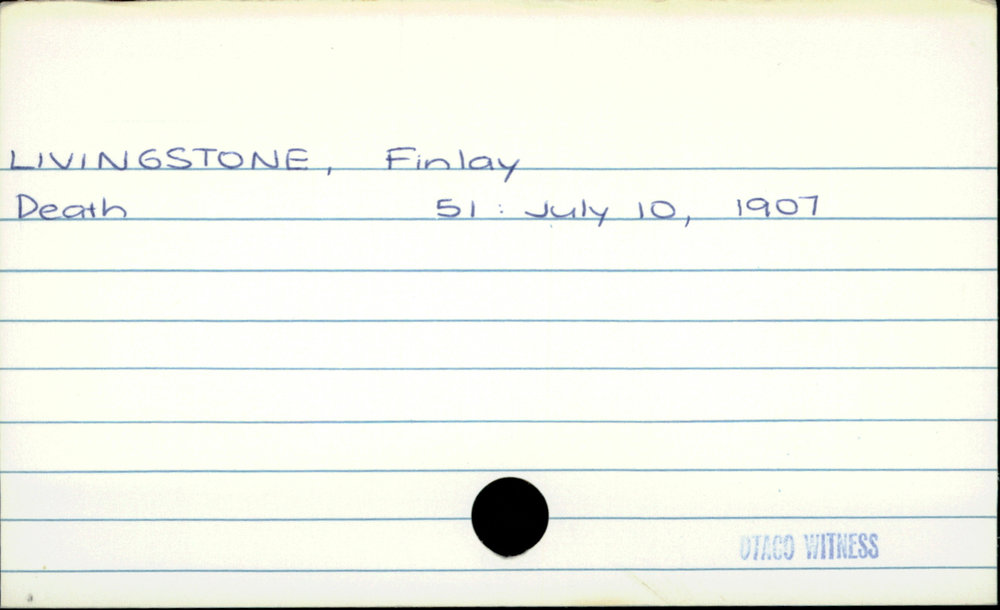 LIVINGSTONE, Finlay
Death 51 : July 10, 1907
OTAGO WITNESS